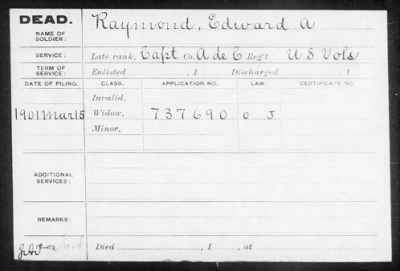 DEAD.
NAME OF SOLDIER:
Raymond, Edward A
SERVICE:
Late rank, Capt Co. A de C Reg't U S Vols
TERM OF SERVICE:
Enlisted , 1 Discharged , 1
DATE OF FILING. CLASS. APPLICATION NO. LAW. CERTIFICATE NO.
Invalid,
1901 Mar 15 Widow, 737690 O J
Minor,
ADDITIONAL SERVICES:
REMARKS:
Died , 1 , at